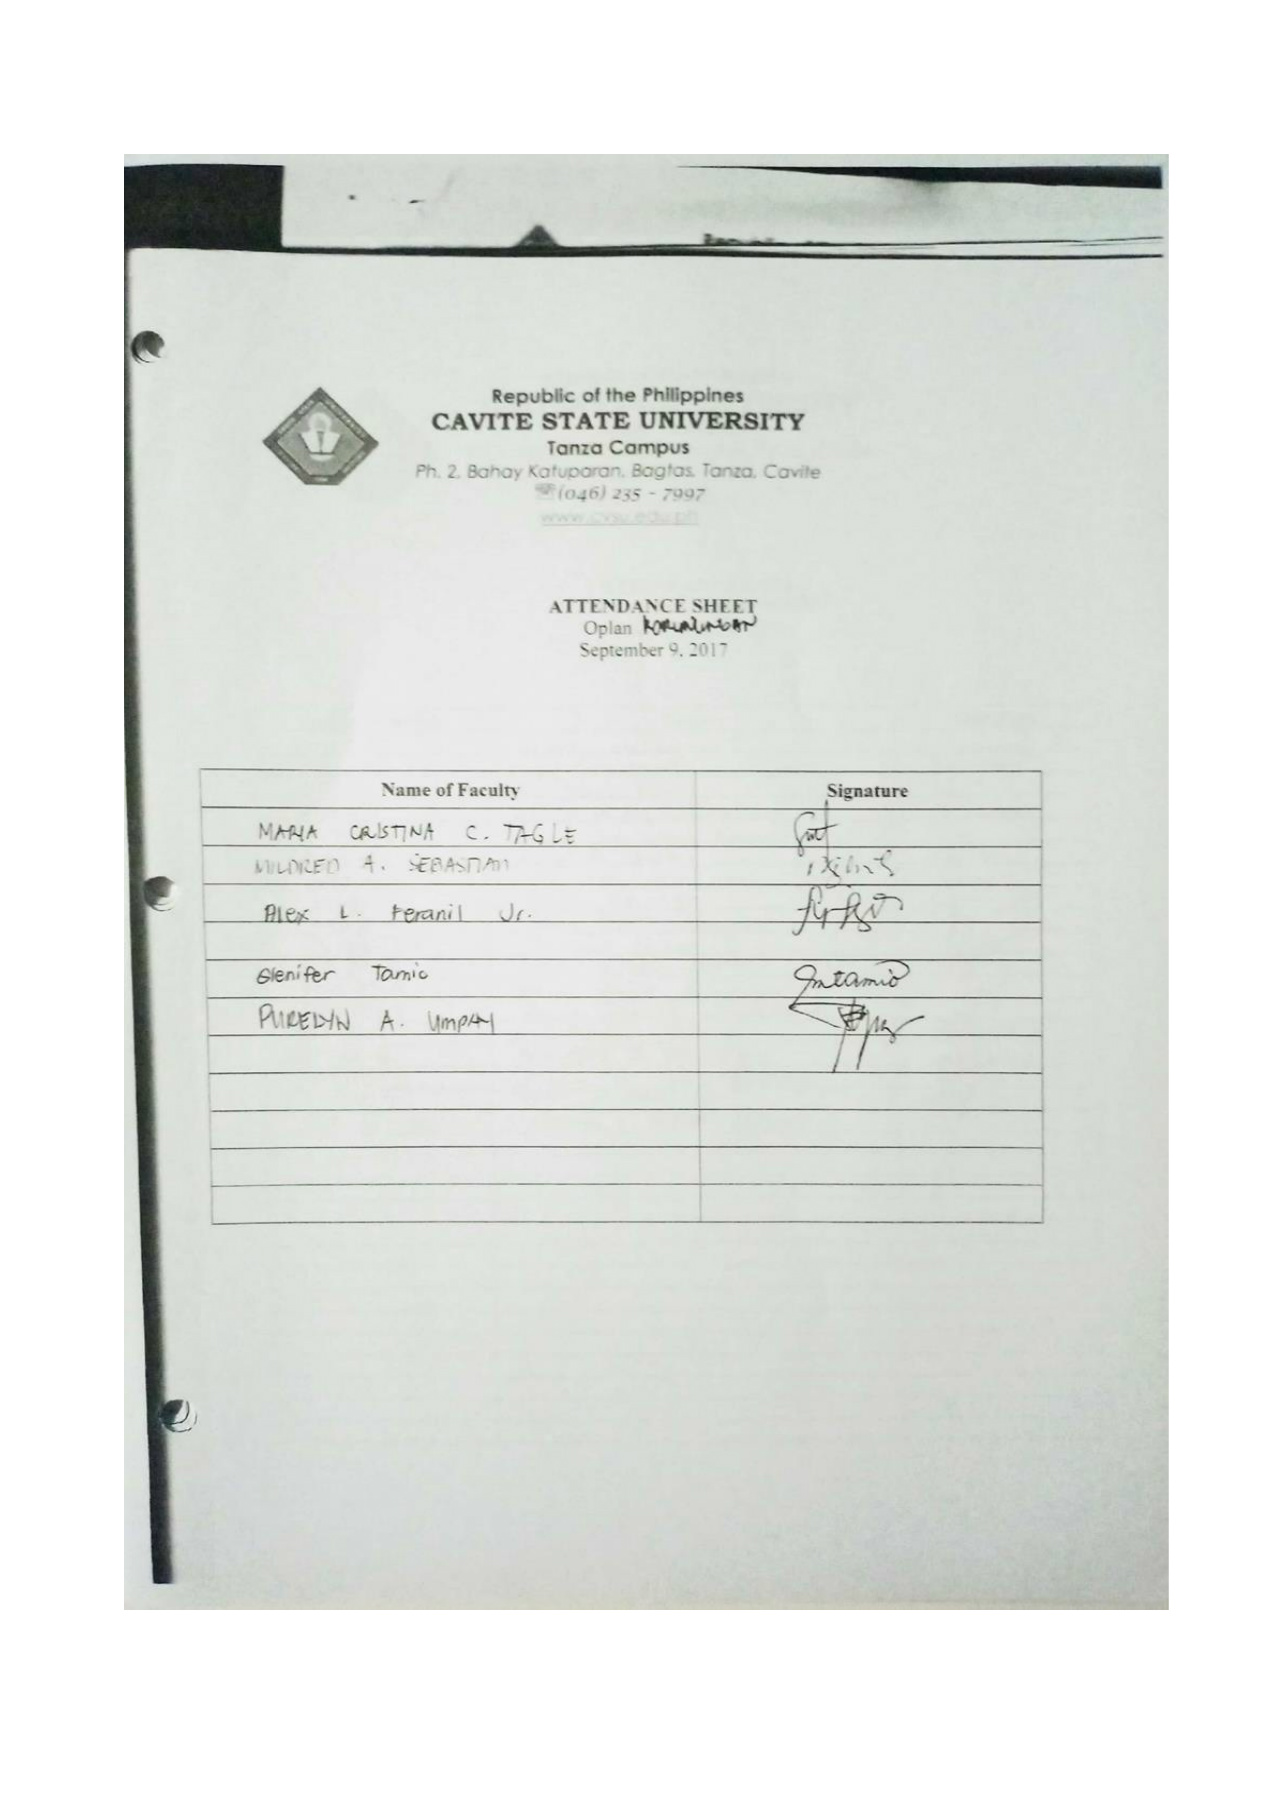 Republic of the Philippines
CAVITE STATE UNIVERSITY
Tanza Campus
Ph. 2, Bahay Katuparan, Bagtas, Tanza, Cavite
☏(046) 235 - 7997
www.cvsu.edu.ph
ATTENDANCE SHEET
Oplan
September 9, 2017
Name of Faculty Signature
MARIA CRISTINA C. TAGLE
MILDRED A. SEBASTIAN
Alex L. Feranil Jr.
Glenifer Tamio
PURELYN A. UMPAY